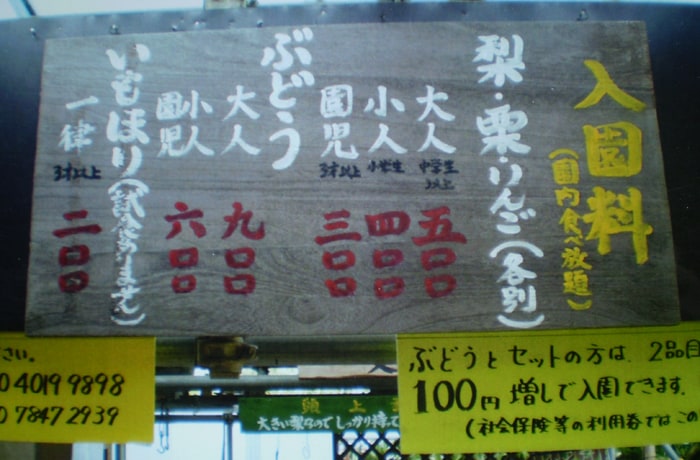 入園料
(園内食べ放題)
梨・栗・りんご(各別)
大人 中学生以上 五〇〇
小人 小学生 四〇〇
園児 3才以上 三〇〇
ぶどう
大人 九〇〇
小人 園児 六〇〇
いもほり(試食ありません)
一律 3才以上 二〇〇
さい。
0 4019 9898
0 7847 2939
ぶどうとセットの方は、2品目
100円増しで入園できます。
(社会保険等の利用券ではこの
頭上
大きい梨なので しっかり持って